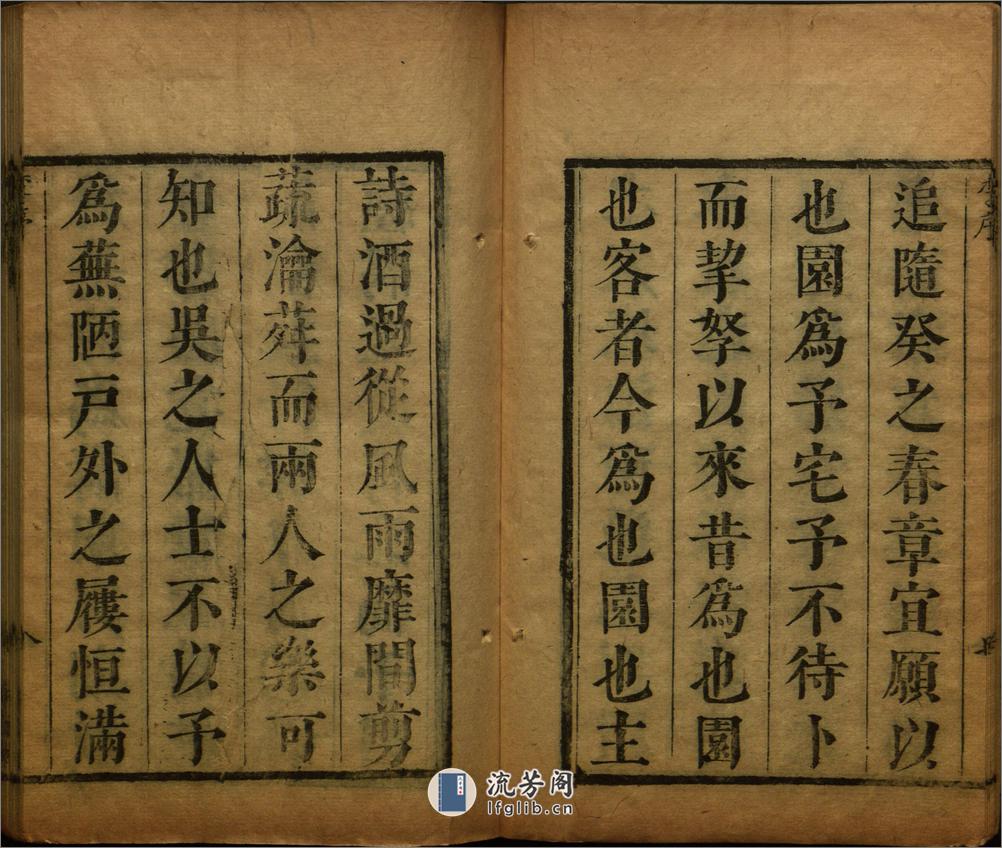 追隨癸之春章宜願以
也園為予宅予不待卜
而挈孥以來昔為也園
也客者今為也園也主
詩酒過從風雨靡間剪
蔬瀹荈而兩人之樂可
知也吳之人士不以予
為蕪陋戸外之屨恒滿
八
流芳阁
lfglib.cn